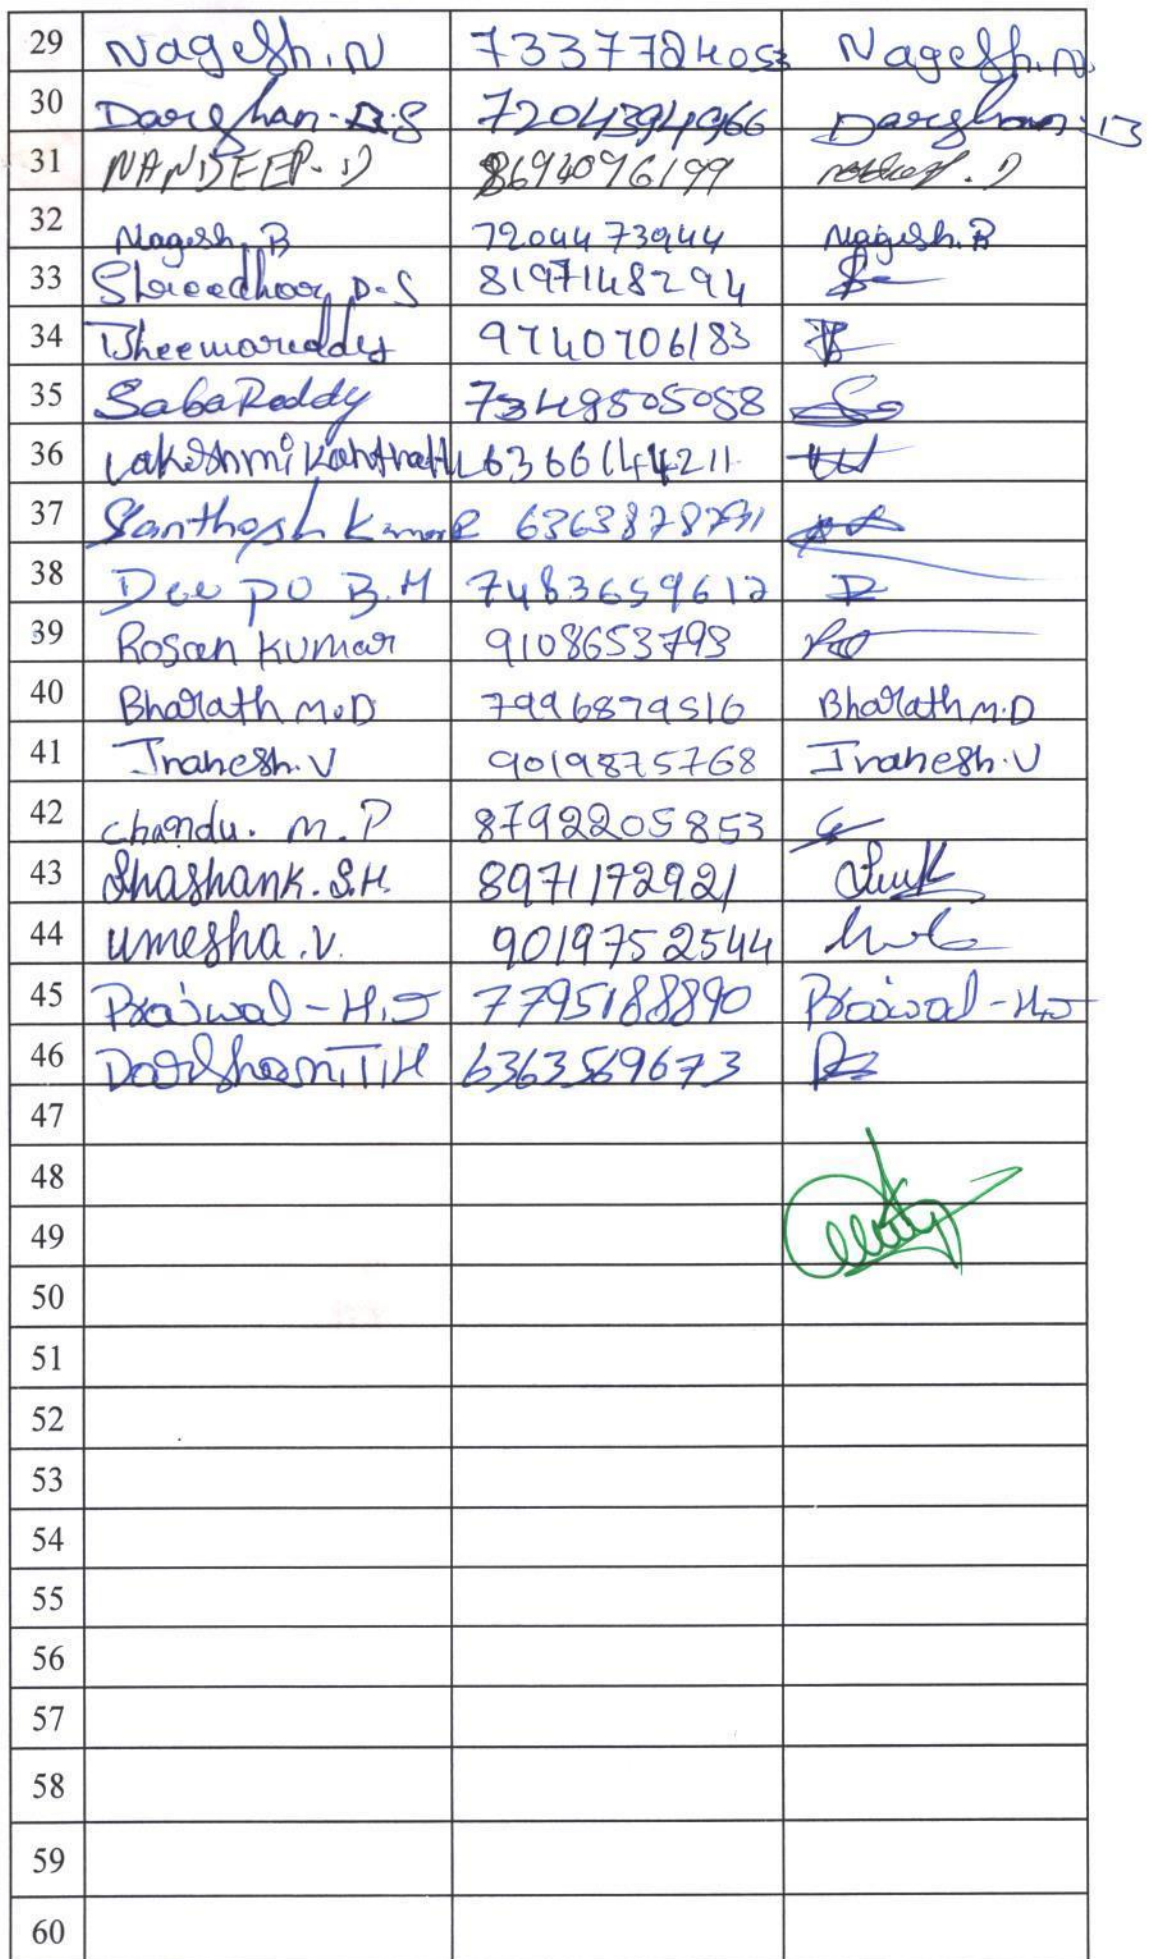 29 Nagesh.N 7337724053 Nagesh.N
30 Darshan.B.S 7204394966 Darshan.B
31 NANDEEP.D 8694096199
32 Nagesh.B 7204473944 Nagesh.B
33 Shreedhar D.S 8197148294
34 Bheemareddy 9740706183
35 SabaReddy 7349505058
36 Lakshmikanthath 6366144211
37 Santhosh Kumar 6363878791
38 Deepu B.H 7483659612 D
39 Rosan Kumar 9108653793
40 Bharath M.D 7996879516 Bharath M.D
41 Jnanesh.V 9019875768 Jnanesh.V
42 Chandu. M.P 8792205853
43 Shashank.S.H. 8971172921
44 Umesha.V. 9019752544
45 Prajwal-H.J 7795188890 Prajwal-H.J
46 Darshan.T.H 6363569673
47
48
49
50
51
52
53
54
55
56
57
58
59
60